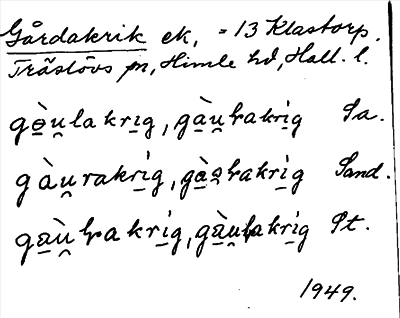 Gårdakrik ek, = 13 Klastorp.
Träslövs sn, Himle hd, Hall. l.
gə̀u̯lakrig, gàu̯rakrig Sa.
gàu̯rakrig, gàərakrig Sand.
gàu̯rakrig, gàu̯rakrig Pt.
1949.